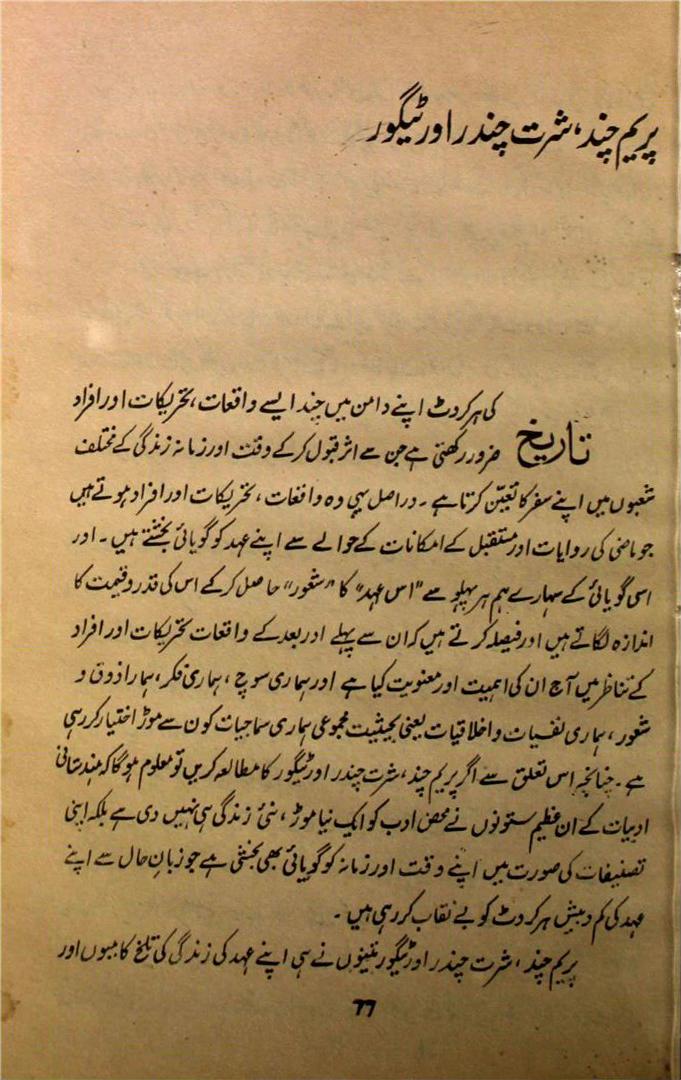 پریم چند، شرت چندر اور ٹیگور
تاریخ کی ہر کروٹ اپنے دامن میں چند ایسے واقعات، تحریکات اور افراد
ضرور رکھتی ہے جن سے اثر قبول کر کے وقت اور زمانہ زندگی کے مختلف
شعبوں میں اپنے سفر کا تعیّن کرتا ہے۔ دراصل یہی وہ واقعات، تحریکات اور افراد ہوتے ہیں
جو ماضی کی روایات اور مستقبل کے امکانات کے حوالے سے اپنے عہد کو گویائی بخشتے ہیں۔ اور
اسی گویائی کے سہارے ہم ہر پہلو سے "اس عہد" کا "شعور" حاصل کر کے اس کی قدر و قیمت کا
اندازہ لگاتے ہیں اور فیصلہ کرتے ہیں کہ ان سے پہلے اور بعد کے واقعات تحریکات اور افراد
کے تناظر میں آج ان کی اہمیت اور معنویت کیا ہے اور ہماری سوچ، ہماری فکر، ہمارا ذوق و
شعور، ہماری نفسیات و اخلاقیات یعنی بحیثیت مجموعی ہماری سماجیات کون سے موڑ اختیار کر رہی
ہے۔ چنانچہ اس تعلق سے اگر پریم چند، شرت چندر اور ٹیگور کا مطالعہ کریں تو معلوم ہوگا کہ ہندستانی
ادبیات کے ان عظیم ستونوں نے محض ادب کو ایک نیا موڑ، نئی زندگی ہی نہیں دی ہے بلکہ اپنی
تصنیفات کی صورت میں اپنے وقت اور زمانہ کو گویائی بھی بخشی ہے جو زبانِ حال سے اپنے
عہد کی کم و بیش ہر کروٹ کو بے نقاب کر رہی ہیں۔
پریم چند، شرت چندر اور ٹیگور تینوں نے ہی اپنے عہد کی زندگی کی تلخ کامیوں اور
٦٦